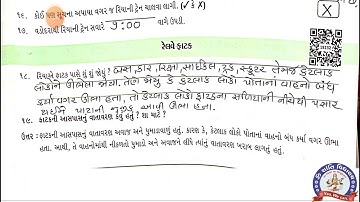 ૧૬. કોઈ પણ સૂચના આપ્યા વગર જ રિયાની ટ્રેન ચાલવા લાગી. (✓ કે X) X
૧૭. વડોદરાથી રિયાની ટ્રેન સવારે ૭:૦૦ વાગે ઉપડી.
રેલવે ફાટક
૧૮. રિયાએ ફાટક પાસે શું શું જોયું ? બસ, કાર, રિક્ષા, સાઈકલ, ટ્રક, સ્કૂટર તેમજ કેટલાક
લોકોને ઊભેલા જોયા. તેણે જોયું કે કેટલાક લોકો પોતાનાં વાહનો બંધ
કર્યા વગર ઊભા હતા, તો કેટલાક લોકો ફાટકના સળિયાની નીચેથી પસાર
થઈને પાટાની નજીક આવી ઊભા હતા.
૧૯. ફાટકની આસપાસનું વાતાવરણ કેવું હતું ? શા માટે ?
ઉત્તર : ફાટકની આસપાસનું વાતાવરણ અવાજ અને ધુમાડાવાળું હતું. કારણ કે, કેટલાક લોકો પોતાનાં વાહનો બંધ કર્યા વગર ઊભા
હતા. આથી, તે વાહનોમાંથી નીકળતો ધુમાડો અને અવાજને લીધે ત્યાંનું વાતાવરણ ખરાબ લાગતું હતું.